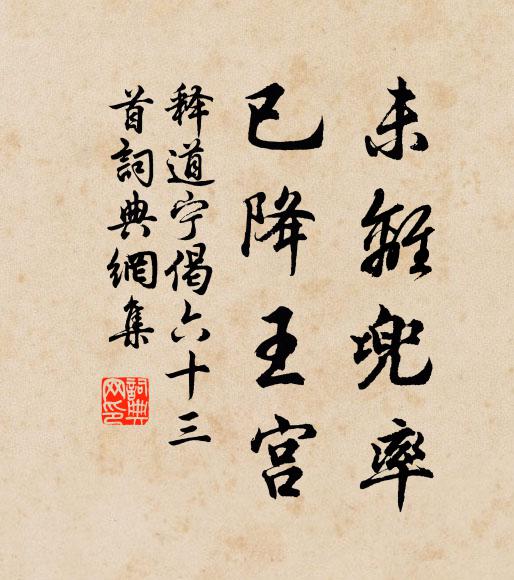 未離兜率
已降王宮
释道宁偈六十三
首詞典網集
詞典
网印